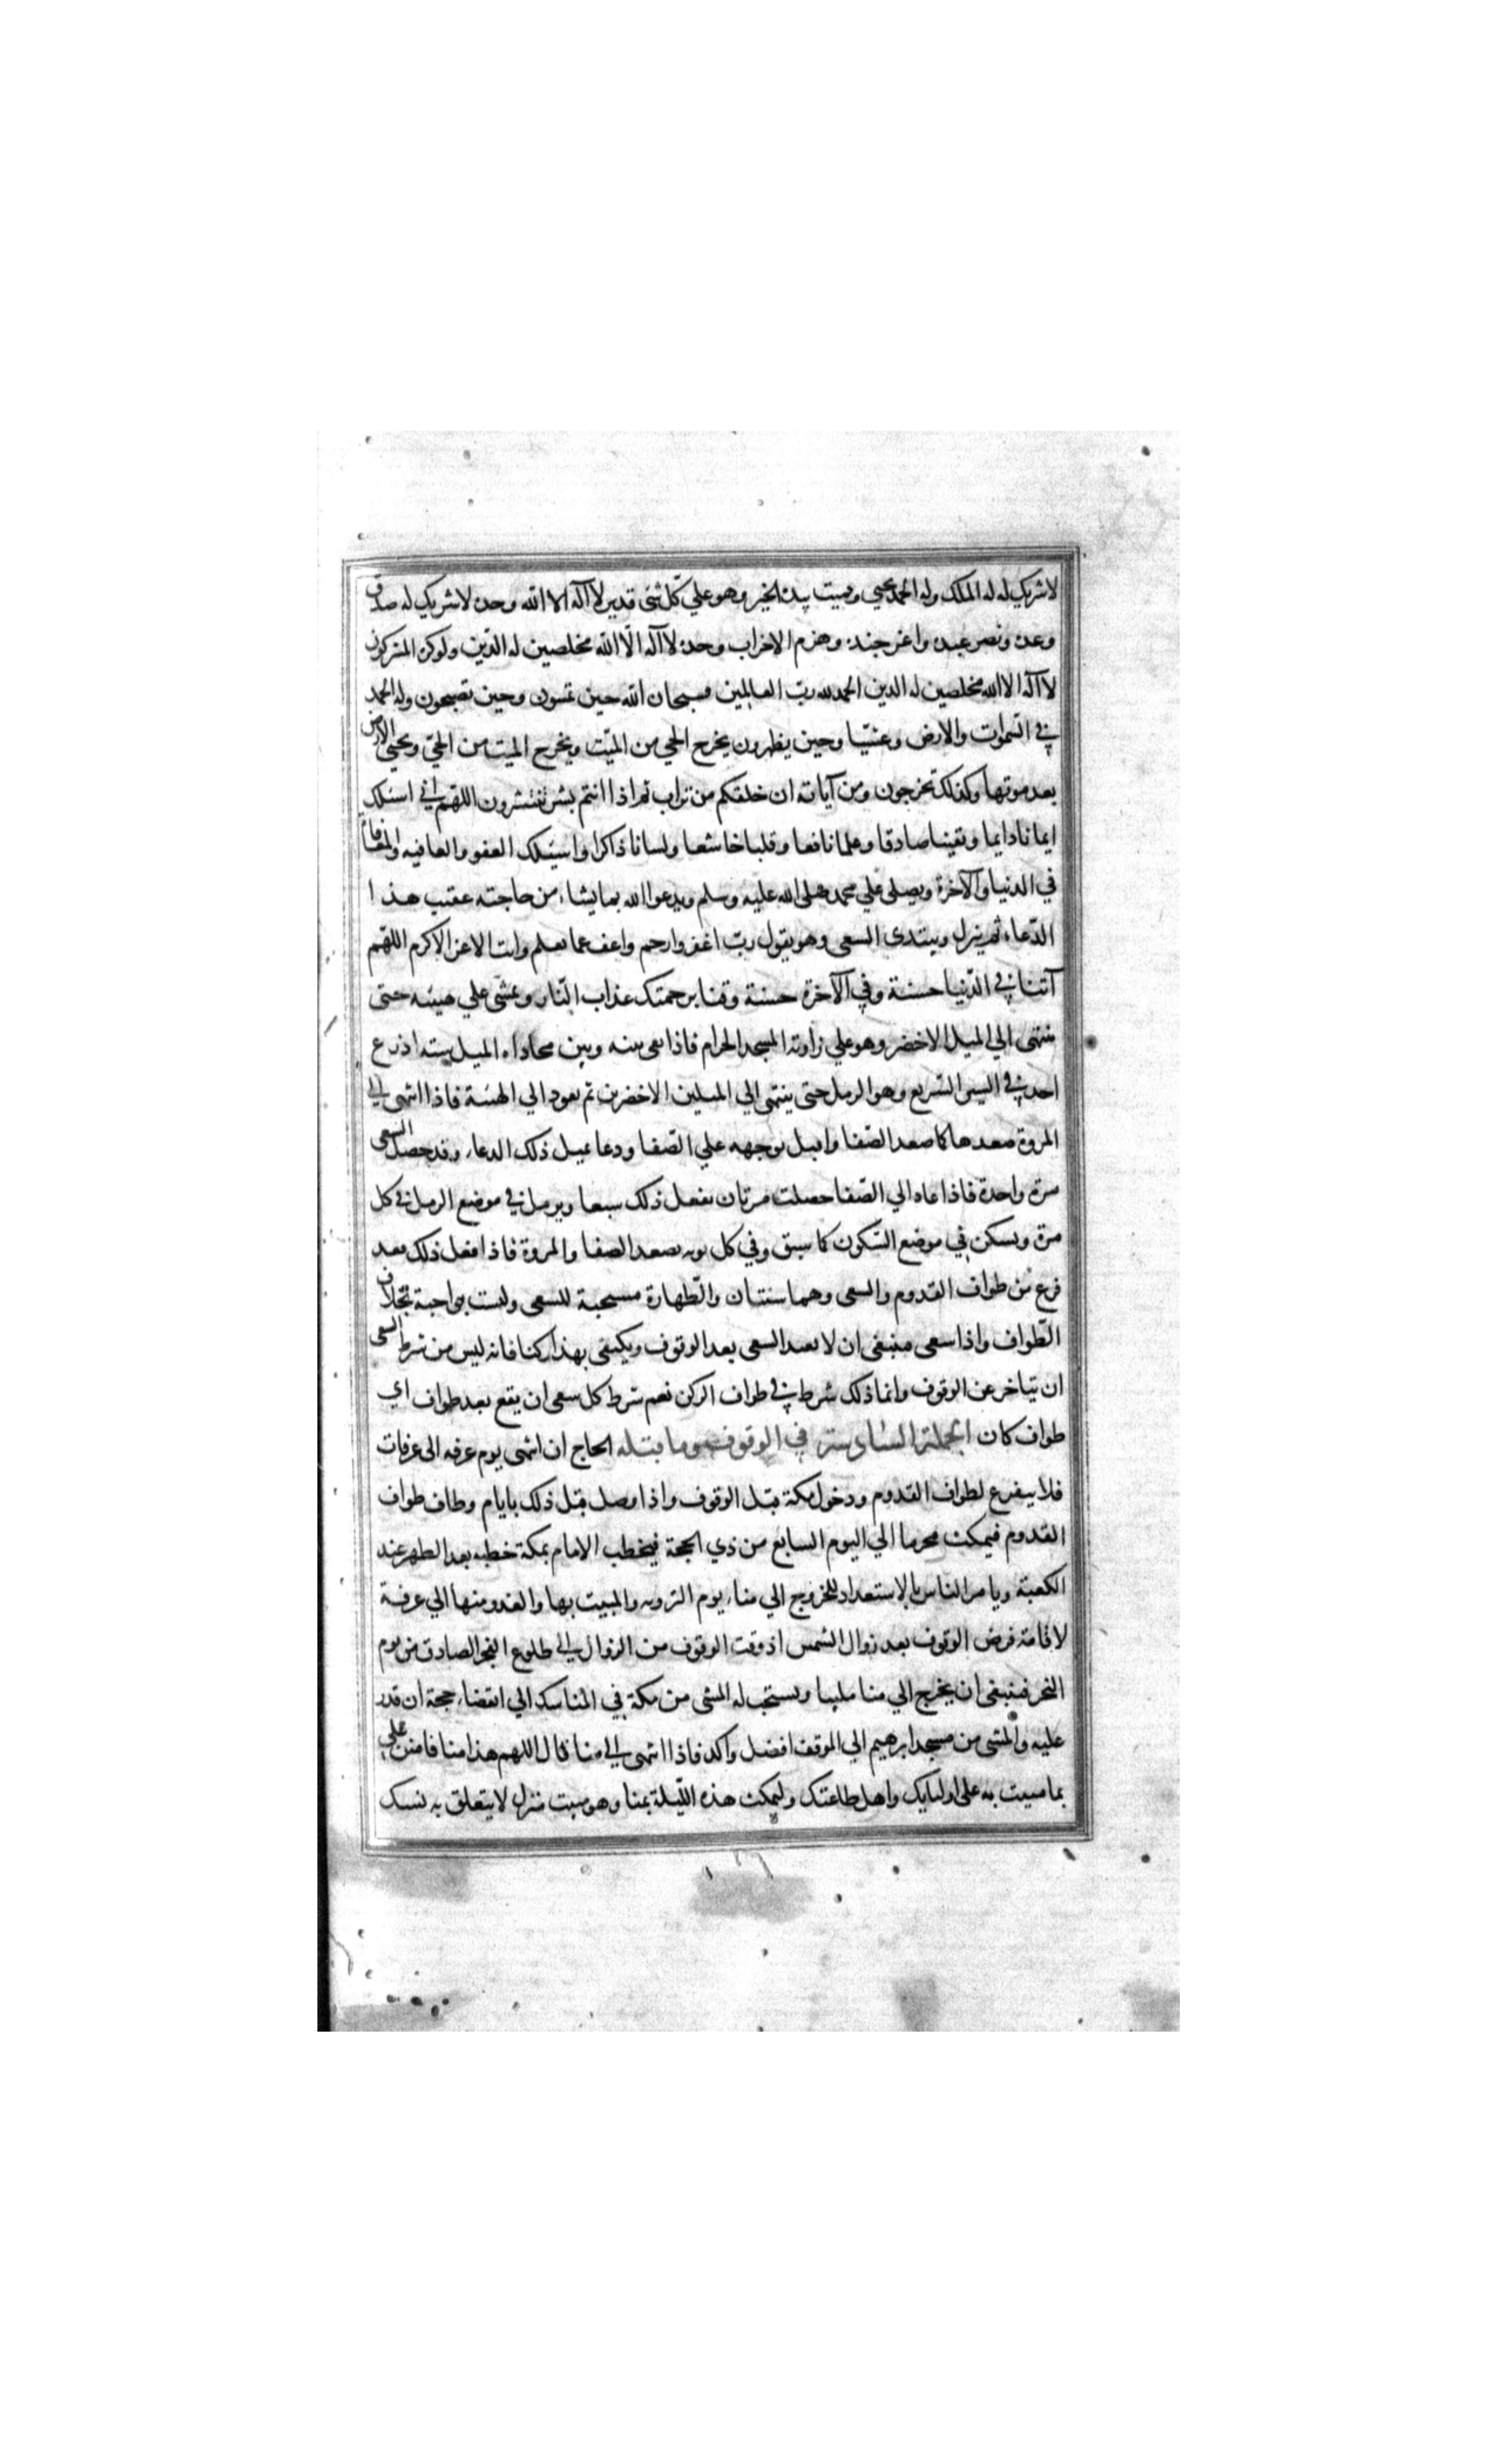 لا شريك له له الملك وله الحمد يحيي ويميت بيده الخير وهو علي كل شئ قدير لا اله الا الله وحده لا شريك له صدق
وعده ونصر عبده واعز جنده وهزم الاحزاب وحده لا اله الا الله مخلصين له الدين ولو كره المشركون
لا اله الا الله مخلصين له الدين الحمد لله رب العالمين فسبحان الله حين تمسون وحين تصبحون وله الحمد
في السموات والارض وعشيا وحين يظهرون يخرج الحي من الميت ويخرج الميت من الحي ويحيي الارض
بعد موتها وكذلك تخرجون ومن آياته ان خلقكم من تراب ثم اذا انتم بشر تنتشرون اللهم اني اسئلك
ايمانا دايما ويقينا صادقا وعلما نافعا وقلبا خاشعا ولسانا ذاكرا واسئلك العفو والعافيه والمعافاة
في الدنيا والآخرة ويصلي علي محمد صلي الله عليه وسلم ويدعو الله بما يشاء من حاجته عقيب هذا
الدعاء ثم ينزل ويبتدى السعي وهو يقول رب اغفر وارحم واعف عما تعلم وانت الاعز الاكرم اللهم
آتنا في الدنيا حسنة وفي الآخرة حسنة وقنا برحمتك عذاب النار ويمشي علي هينته حتي
ينتهي الي الميل الاخضر وهو علي زاوية المسجد الحرام فاذا بقي بينه وبين محاذاه الميل سته اذرع
اخذ في السير السريع وهو الرمل حتي ينتهي الي الميلين الاخضرين ثم يعود الي الهينة فاذا انتهي الي
المروة صعدها كما صعد الصفا واقبل بوجهه علي الصفا ودعا بمثل ذلك الدعاء وقد حصل السعي
مرة واحدة فاذا عاد الي الصفا حصلت مرتان يفعل ذلك سبعا ويرمل في موضع الرمل في كل
مرة ويسكن في موضع السكون كما سبق وفي كل نوبه يصعد الصفا والمروة فاذا فعل ذلك فقد
فرغ من طواف القدوم والسعي وهما سنتان والطهارة مستحبة للسعي وليست بواجبة بخلاف
الطواف واذا سعي فينبغي ان لا يعيد السعي بعد الوقوف ويكتفي بهذا ركنا فانه ليس من شرط السعي
ان يتاخر عن الوقوف وانما ذلك شرط في طواف الركن نعم شرط كل سعي ان يقع بعد طواف اي
طواف كان الجملة السادسة في الوقوف وما قبله الحاج ان انتهى يوم عرفه الى عرفات
فلا يتفرغ لطواف القدوم ودخول مكة قبل الوقوف واذا وصل قبل ذلك بايام وطاف طواف
القدوم فيمكث محرما الي اليوم السابع من ذي الحجة فيخطب الامام بمكة خطبه بعد الظهر عند
الكعبة ويامر الناس بالاستعداد للخروج الي مناء يوم الترويه والمبيت بها والغدو منها الي عرفة
لاقامة فرض الوقوف بعد زوال الشمس اذ وقت الوقوف من الزوال الي طلوع الفجر الصادق من يوم
النحر فينبغي ان يخرج الي منا ملبيا ويستحب له المشي من مكة في المناسك الي انقضاء حجة ان قدر
عليه والمشي من مسجد ابرهيم الي الموقف افضل واكد فاذا انتهي الي منا قال اللهم هذا منا فامنن علي
بما مننت به على اوليايك واهل طاعتك وليمكث هذه الليلة بمنا وهو مبيت منزل لا يتعلق به نسك